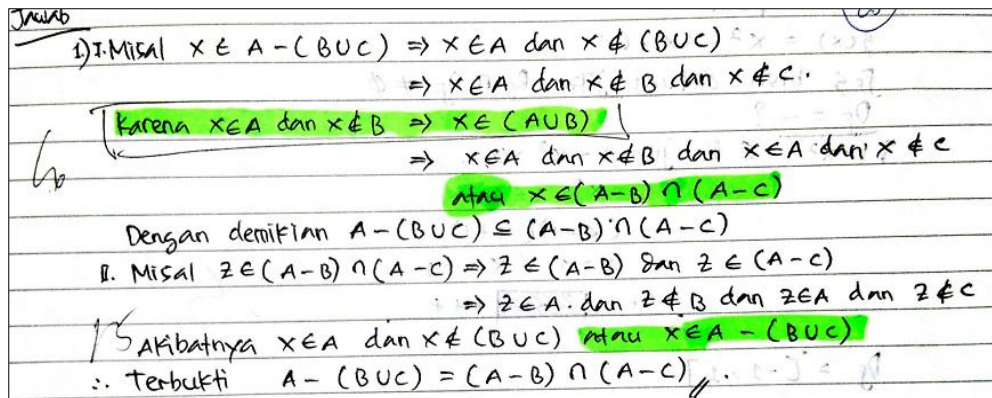 Jawab
1) I. Misal x ∈ A - (B ∪ C) ⇒ x ∈ A dan x ∉ (B ∪ C)
⇒ x ∈ A dan x ∉ B dan x ∉ C.
Karena x ∈ A dan x ∉ B ⇒ x ∈ (A ∪ B)
⇒ x ∈ A dan x ∉ B dan x ∈ A dan x ∉ C
atau x ∈ (A - B) ∩ (A - C)
Dengan demikian A - (B ∪ C) ⊆ (A - B) ∩ (A - C)
II. Misal z ∈ (A - B) ∩ (A - C) ⇒ z ∈ (A - B) dan z ∈ (A - C)
⇒ z ∈ A. dan z ∉ B dan z ∈ A dan z ∉ C
15 Akibatnya x ∈ A dan x ∉ (B ∪ C) atau x ∈ A - (B ∪ C)
∴ Terbukti A - (B ∪ C) = (A - B) ∩ (A - C) //.